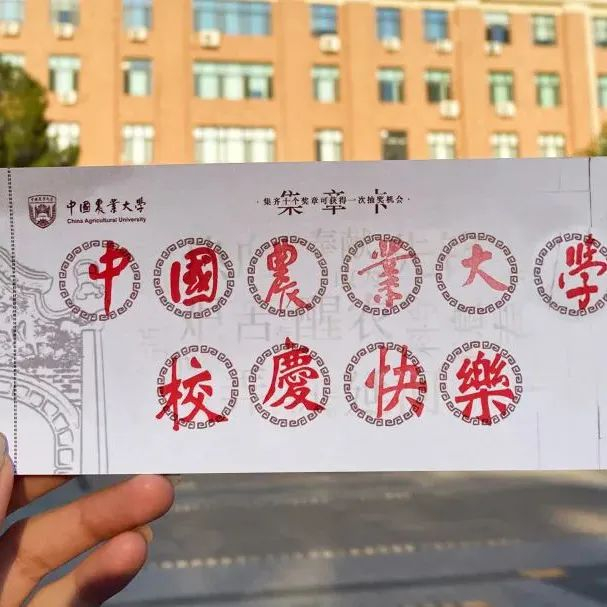 中国农業大学
China Agricultural University
集章卡
·集齐十个奖章可获得一次抽奖机会·
中國農業大学
校慶快樂